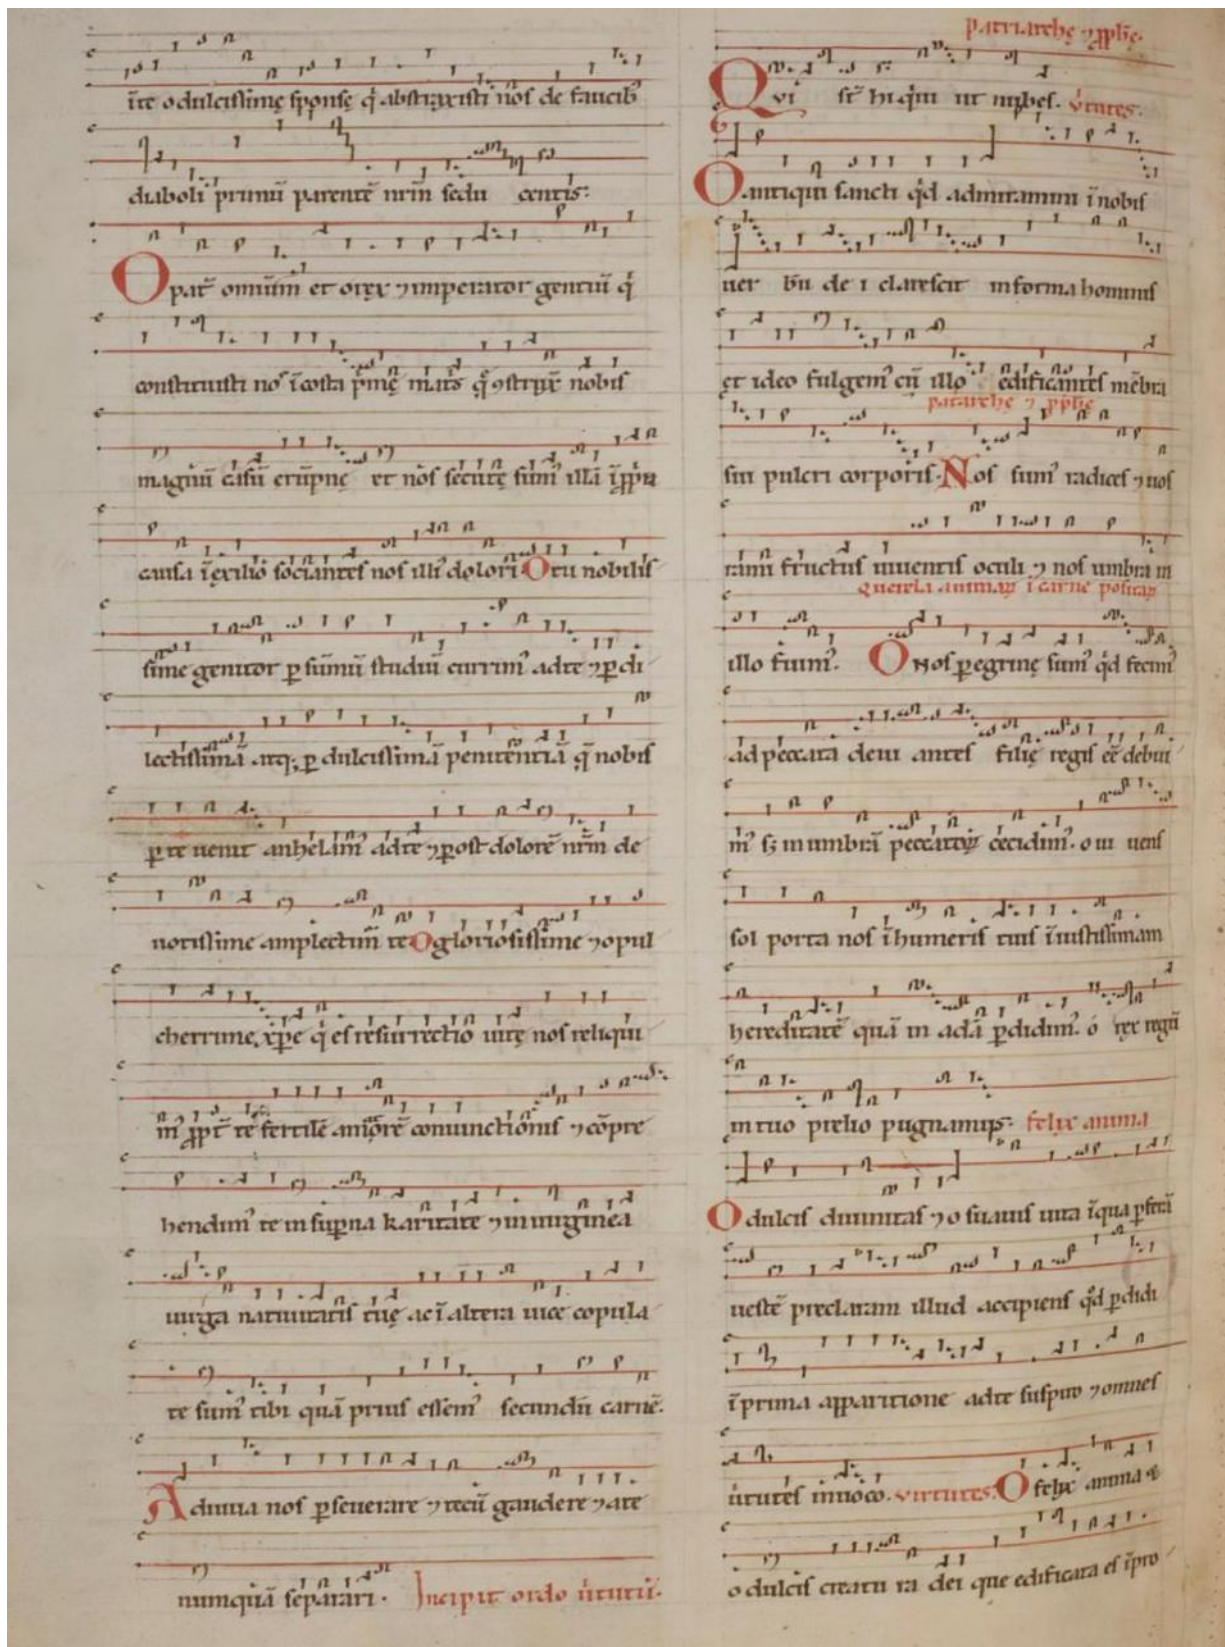 in te o dulcissimę sponsę q̇ abstraxisti nos de faucib'
diaboli primum parentē nrm̄ sedu centis:
O pat̄ omnium et o rex ⁊ imperator gentiū q̇
constituisti nos ī costa p̄mę mat̄s q̄ ɔstrux̄ nobis
magnū casū erūpnę et nos secutę sum' illā ī ꝓp̄a
causa ī exilio sociantes nos illi dolori. O tu nobilis
sime genitor ꝑ sūmū studiū currim' ad te ⁊ ꝑ di
lectissimā atq; ꝑ dulcissimā penitentiā q̄ nobis
ꝑ te uenit anhelam' ad te ⁊ post dolorē nrm̄ de
uotissime amplectim̄ te O gloriosissime ⁊ o pul
cherrime xp̄e q̇ es resurrectio uitę nos reliqui
m' ꝓpt̄ te fertilē amorē coniunctionis ⁊ cōpre
hendim' te in supna karitate ⁊ in uirginea
uirga natiuitatis tuę ac ī altera uice copula
te sum' tibi quā prius essem' secundū carnē.
Adiuua nos ꝑseuerare ⁊ tecū gaudere ⁊ a te
numquā separari. Incipit ordo u̇tutū.
patriarchę ⁊ ꝓph̄ę.
Qui st̄ hi q̇ ut nubes. u̇tutes.
O antiqui sancti q̇d admiramini ī nobis
uer bū dei clarescit in forma hominis
et ideo fulgem' cū illo edificantes mēbra
patarchę ⁊ ꝓph̄ę
sui pulcri corporis. Nos sum' radices ⁊ uos
rami fructus uiuentis oculi ⁊ nos umbra in
Querela animaꝝ ī carne positaꝝ
illo fuim'. O nos ꝑegrinę sum' q̇d fecim'
ad peccata deui antes filię regis ēē debui
m' sꝫ in umbrā peccatoꝝ cecidim'. o ui uens
sol porta nos ī humeris tuis ī iustissimam
hereditatē quā in adā ꝑdidim'. o rex regū
in tuo prelio pugnamus. felix anima
O dulcis diuinitas ⁊ o suauis uita ī qua ꝑferā
uestē preclaram illud accipiens q̇d ꝑdidi
ī prima apparitione ad te suspiro ⁊ omnes
u̇tutes inuoco. virtutes. O felix anima ⁊
o dulcis creatu ra dei que edificata es ī pro